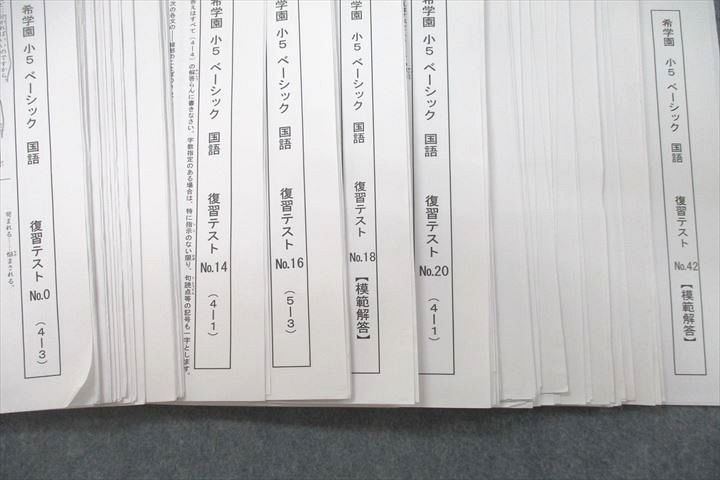 希学園 小5 ベーシック 国語 復習テスト No.42 【模範解答】
希学園 小5 ベーシック 国語 復習テスト No.20 (4-1)
希学園 小5 ベーシック 国語 復習テスト No.18 【模範解答】
希学園 小5 ベーシック 国語 復習テスト No.16 (5-3)
希学園 小5 ベーシック 国語 復習テスト No.14 (4-1)
答えはすべて(4-4)の解答らんに書きなさい。字数指定のある場合は、特に指示のない限り、句読点等の記号も一字とします。
次の各文の
希学園 小5 ベーシック 国語 復習テスト No.0 (4-3)
苛まれる——悩まされる。